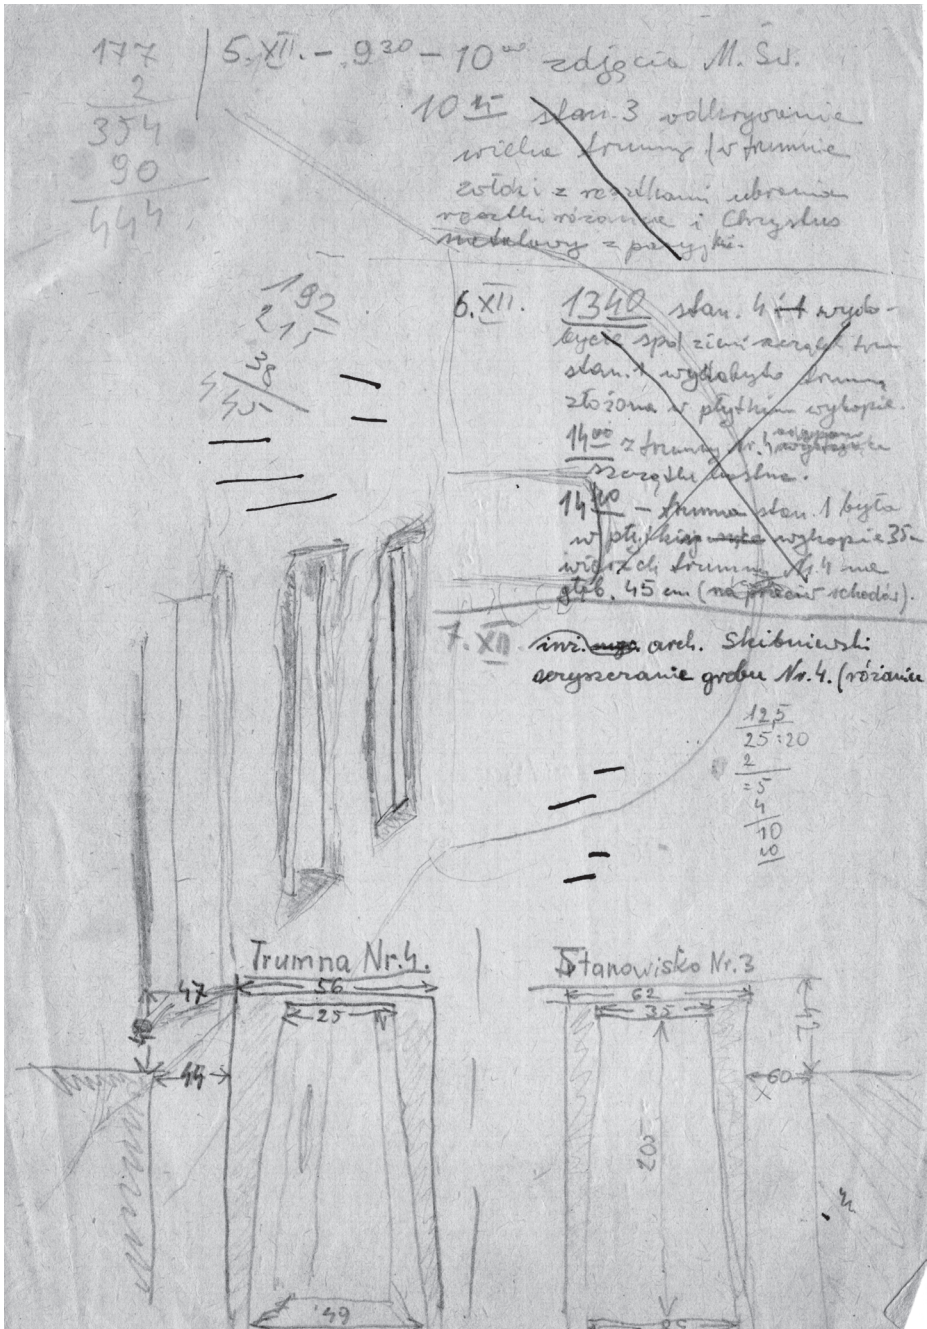 177
2
354
90
444
5.XII. - 9 30 - 10 00 zdjęcia M. Św.
10 15 stan. 3 odkrywanie
wieka trumny (w trumnie
zwłoki z resztkami ubrania
resztki różańca i Chrystus
metalowy z
192
215
38
445
6.XII. 1340 stan. 4 wydo-
bycie spod ziemi
stan. 1 wydobyto trumnę
złożona w płytkim wykopie.
14 00 z trumny Nr. 4
szczątki
14 20 - trumna stan. 1 była
w wykopie 35
wierzch trumny N.4 na
głęb. 45 cm (naprzeciw schodów).
7. XII inż. arch. Skibniewski
grobu Nr. 4. (różaniec
12,5
25:20
2
=5
4
10
10
Trumna Nr. 4.
Stanowisko Nr. 3
47
56
25
44
49
62
35
42
60
203
85